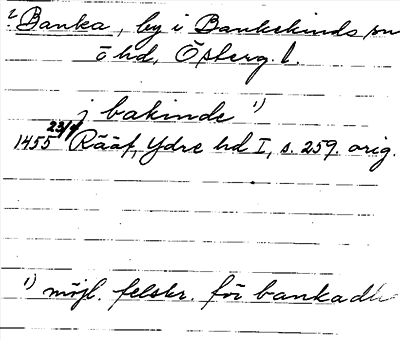 ? Banka, by i Bankekinds sn
ö hd, Österg. l.
j bakinde 1)
1455 23/4 Rääf, Ydre hd I, s. 259. orig.
1) möjl. felskr. för bankadh